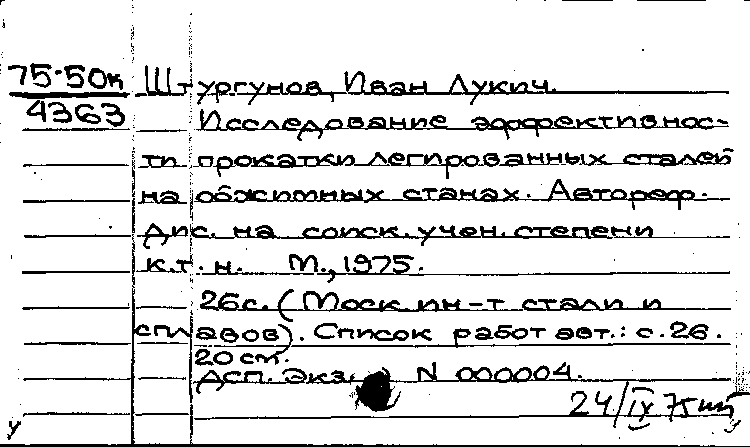 75-50к Штургунов, Иван Лукич.
4363
Исследование эффективнос-
ти прокатки легированных сталей
на обжимных станах. Автореф.
дис. на соиск. учен. степени
к.т.н. М., 1975.
26с. (Моск ин-т стали и
сплавов). Список работ авт.: с.26.
20 см.
Дсп. Экз. N 000004.
24/IX 75
у у